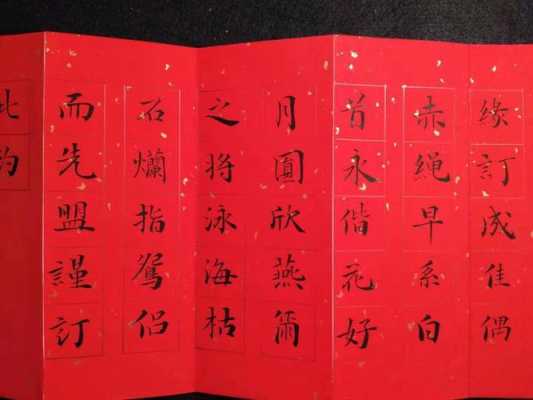 缘訂成佳偶
赤绳早系白
首永偕花好
月圓欣燕爾
之将泳海枯
石爛指鴛侣
而先盟謹訂
此约